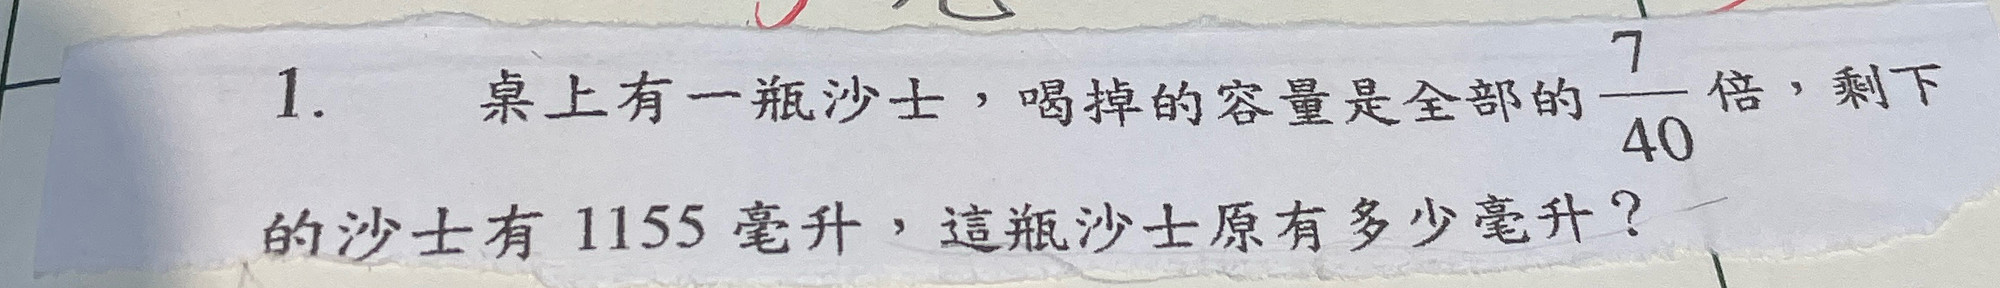 1. 桌上有一瓶沙士，喝掉的容量是全部的 7/40 倍，剩下
的沙士有 1155 毫升，這瓶沙士原有多少毫升？